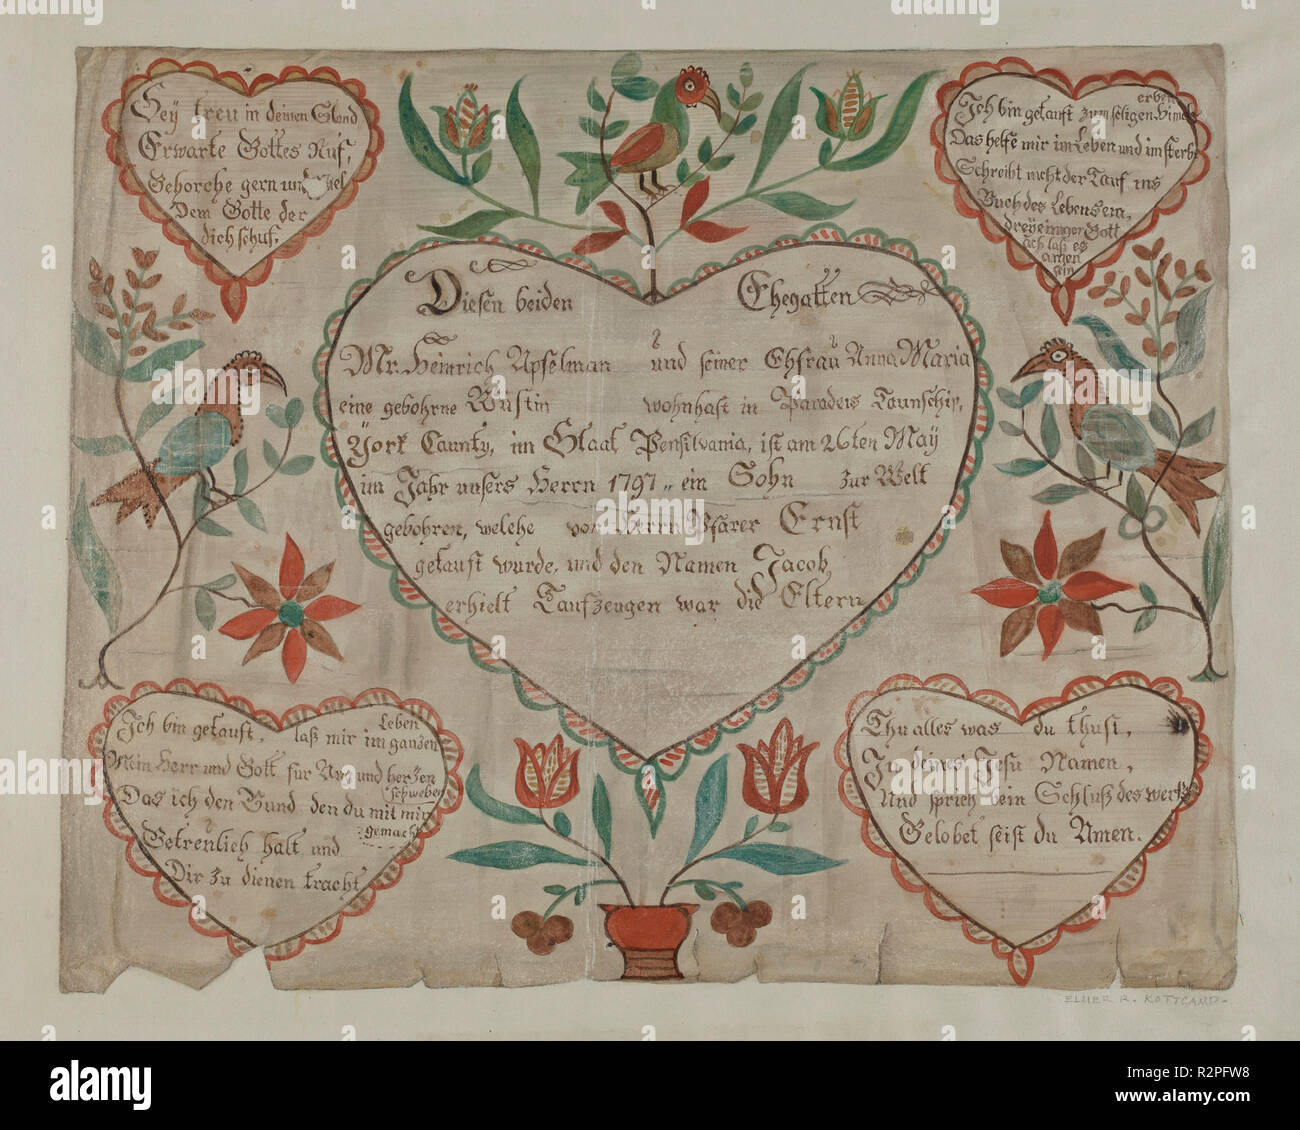 Sey treu in deinen Stand
Erwarte Gottes Ruf,
Gehorche gern und
Dem Gotte der
dich schuf.
erben
Ich bin getauft zum seligen
Das helfe mir im Leben und im sterb
Schreibt mich der Tauf ins
Buch des Lebens ein,
dreyeiniger Gott
ach laß es
amen
sein
Diesen beiden Ehegatten
Mr. Heinrich Apselman und seiner Ehfrau Anna Maria
eine gebohrne Wüstin wohnhaft in Paradeis Taunschip,
York Caunty, im Staat Pensilvania, ist am 26ten May
im Jahr unsers Herrn 1797 „ ein Sohn zur Welt
gebohren, welche von Herrn Pfärer Ernst
getauft wurde, und den Namen Jacob
erhielt Taufzeugen war die Eltern
Leben
Ich bin getauft, laß mir im ganzen
Mein Herr und Gott für und herzen
schweben
Das ich den Bund den du mit mir
gemacht
Getreulich halt und
Dir zu dienen tracht
Thu alles was du thust,
In deines Jesu Namen,
Und sprich beim Schluß des werks
Gelobet seist du Amen.
ELMER R. KOTTCAMP-
alamy
alamy stock photo
R2PFW8
www.alamy.com